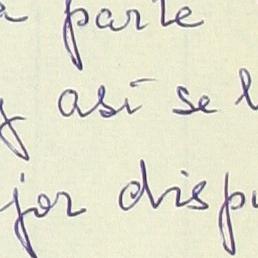 a parte
y así se l
jor disp